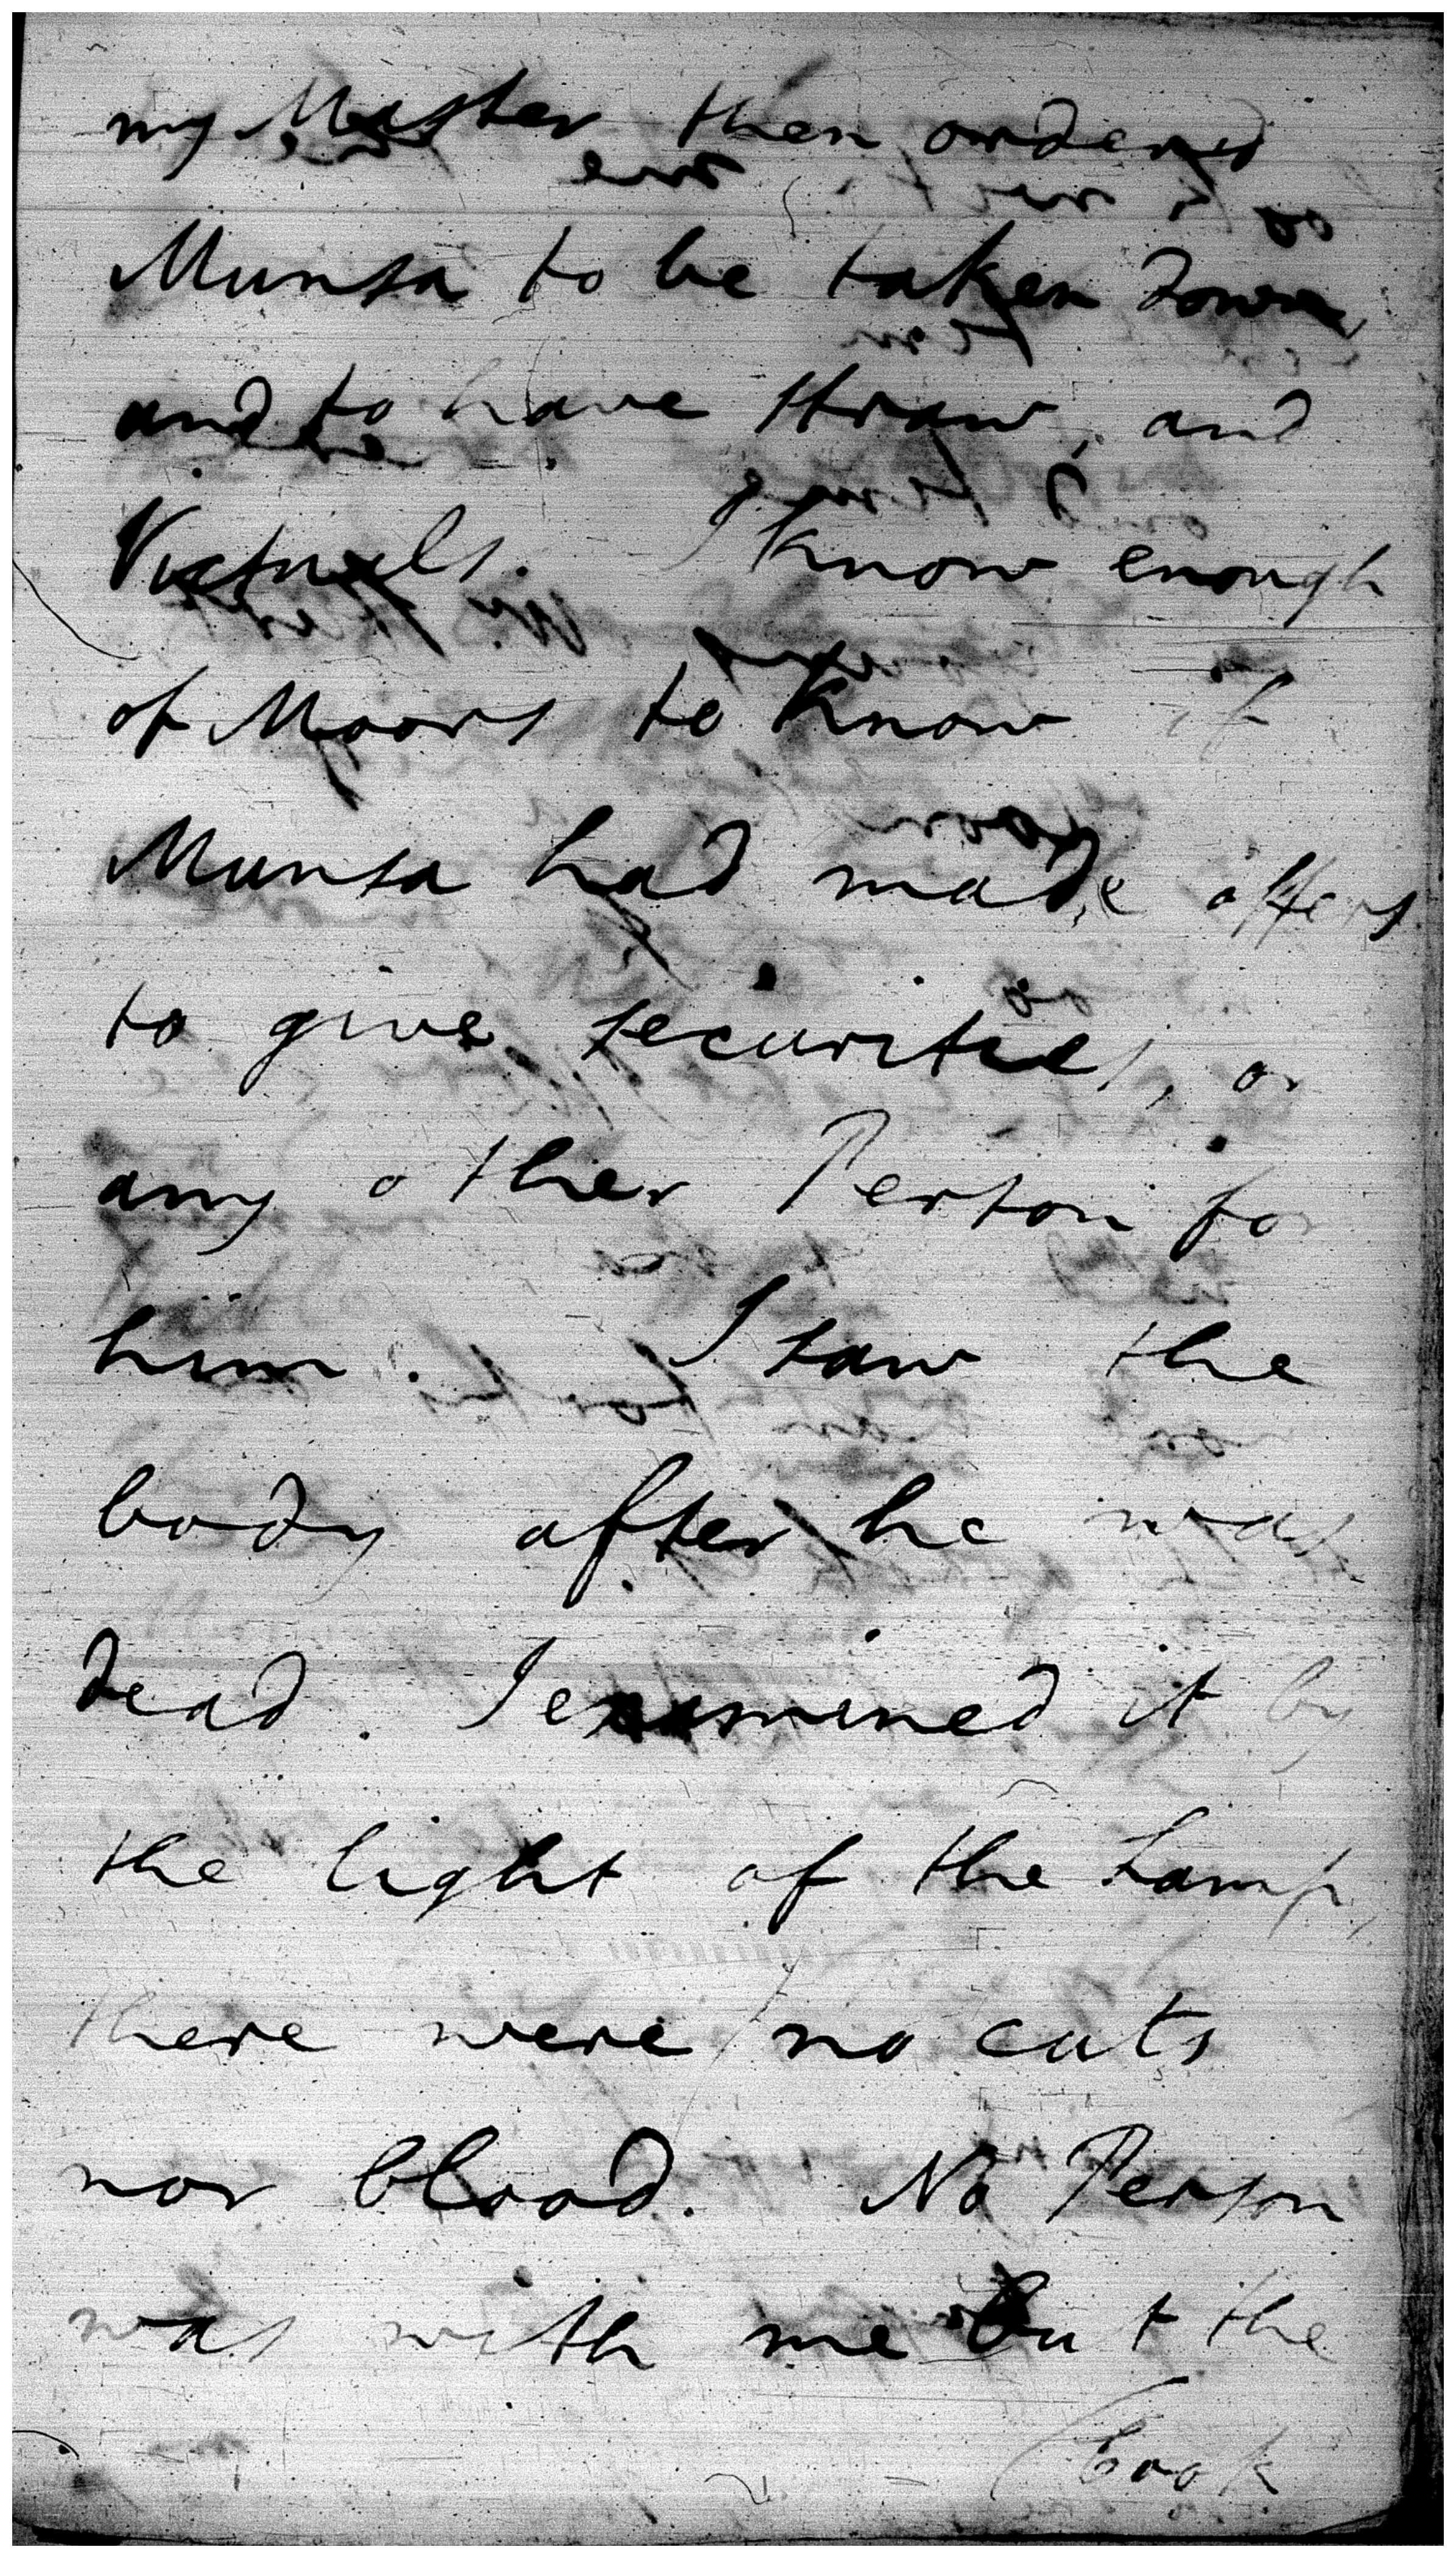 my Master then ordered
Munsa to be taken down,
and to have straw, and
Victuals. I know enough
of Moors to know if
Munsa had made offers
to give securities, or
any other Person for
him. I saw the
body after he was
dead. I examined it by
the light of the Lamp,
there were no cuts
nor blood. No Person
was with me but the
Cook